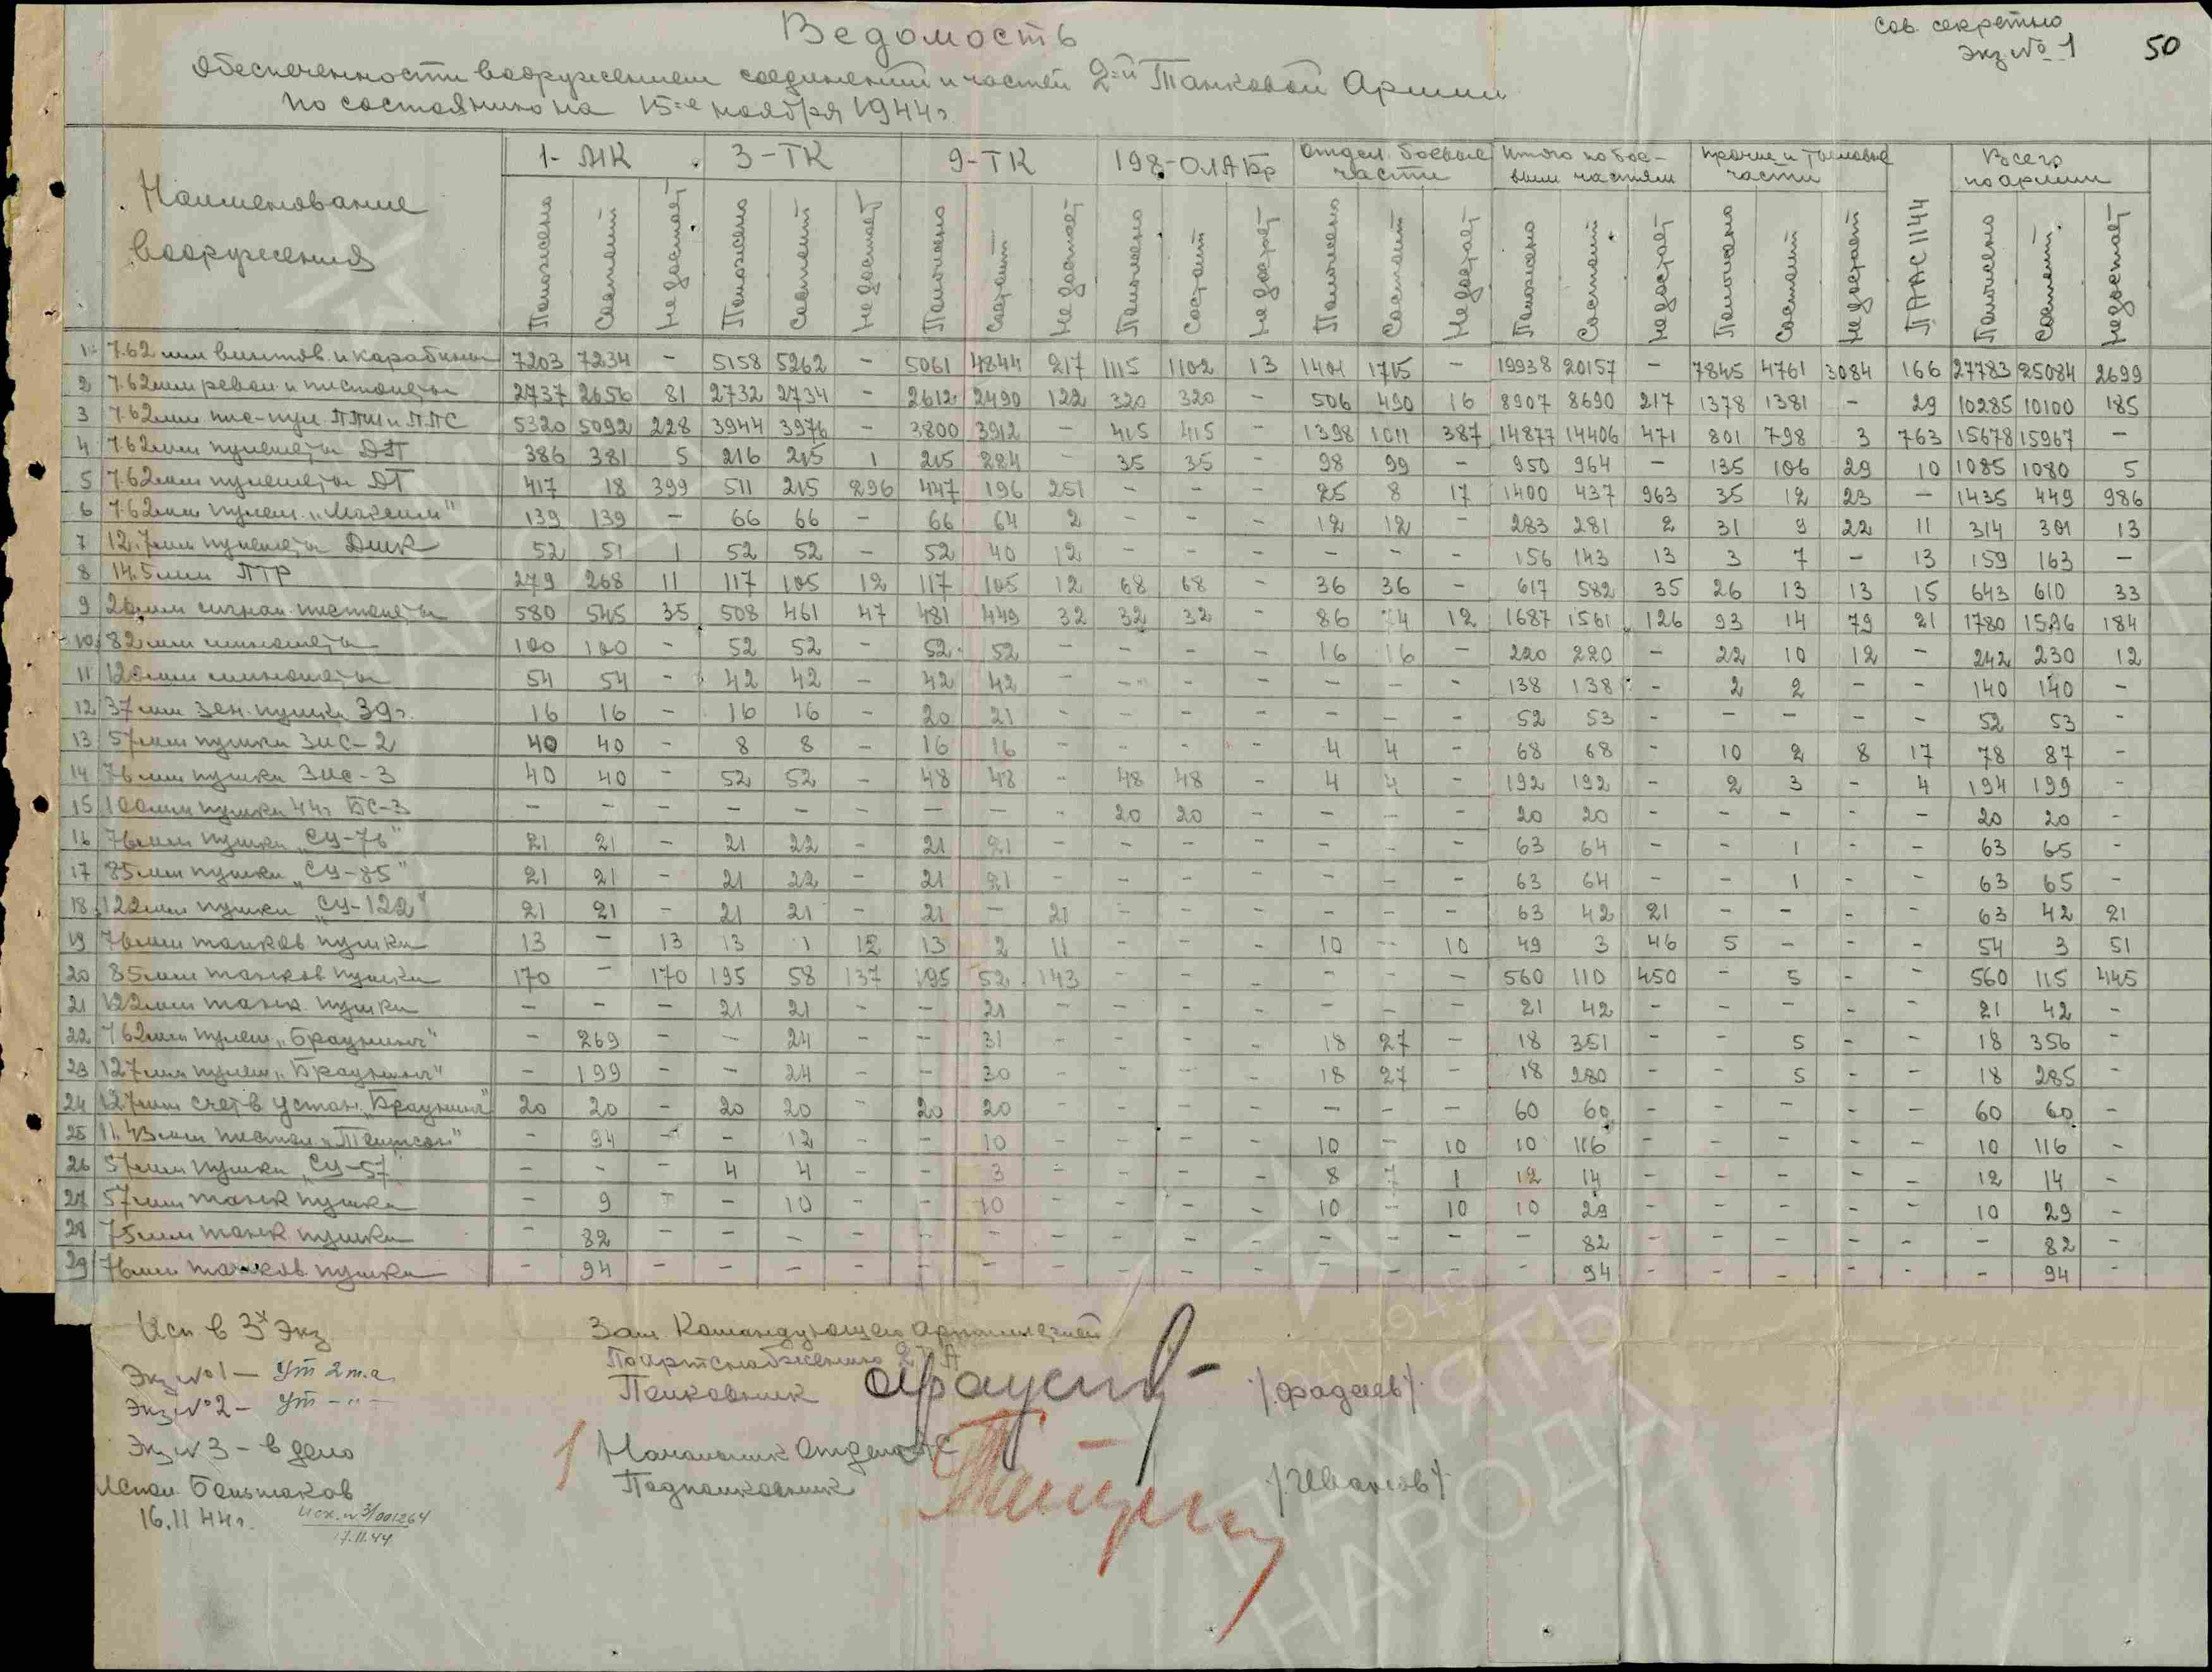 Ведомость
Сов. секретно
Экз № 1
50
Обеспеченности вооружением соединений и частей 2-й Танковой Армии
по состоянию на 15-е ноября 1944г.
Наименование вооружения | 1-МК | 3-ТК | 9-ТК | 198-ОЛАБр | Отдел. боевые части | Итого по боевым частям | Прочие и тыловые части | ПААС 1144 | Всего по армии
Положено Состоит Недостает Положено Состоит Недостает Положено Состоит Недостает Положено Состоит Недостает Положено Состоит Недостает Положено Состоит Недостает Положено Состоит Недостает Положено Состоит Недостает
1 7.62 мм винтов. и карабины 7203 7234 - 5158 5262 - 5061 4844 217 1115 1102 13 1401 1715 - 19938 20157 - 7845 4761 3084 166 27783 25084 2699
2 7.62мм револ и пистолеты 2737 2656 81 2732 2734 - 2612 2490 122 320 320 - 506 490 16 8907 8690 217 1378 1381 - 29 10285 10100 185
3 7.62мм пис-пул. ППШ и ППС 5320 5092 228 3944 3976 - 3800 3912 - 415 415 - 1398 1011 387 14877 14406 471 801 798 3 763 15678 15967 -
4 7.62мм пулеметы ДП 386 381 5 216 215 1 215 284 - 35 35 - 98 99 - 950 964 - 135 106 29 10 1085 1080 5
5 7.62мм пулеметы ДТ 417 18 399 511 215 296 447 196 251 - - - 25 8 17 1400 437 963 35 12 23 - 1435 449 986
6 7.62мм пулем. „Максим" 139 139 - 66 66 - 66 64 2 - - - 12 12 - 283 281 2 31 9 22 11 314 301 13
7 12.7мм пулеметы ДШК 52 51 1 52 52 - 52 40 12 - - - - - - 156 143 13 3 7 - 13 159 163 -
8 14.5мм ПТР 279 268 11 117 105 12 117 105 12 68 68 - 36 36 - 617 582 35 26 13 13 15 643 610 33
9 26мм сигнал. пистолеты 580 545 35 508 461 47 481 449 32 32 32 - 86 74 12 1687 1561 126 93 14 79 21 1780 1596 184
10 82мм минометы 100 100 - 52 52 - 52 52 - - - - 16 16 - 220 220 - 22 10 12 - 242 230 12
11 120мм минометы 54 54 - 42 42 - 42 42 - - - - - - - 138 138 - 2 2 - - 140 140 -
12 37мм зен. пушки 39г. 16 16 - 16 16 - 20 21 - - - - - - - 52 53 - - - - - 52 53 -
13 57мм пушки ЗИС-2 40 40 - 8 8 - 16 16 - - - - 4 4 - 68 68 - 10 2 8 17 78 87 -
14 76мм пушки ЗИС-3 40 40 - 52 52 - 48 48 - 48 48 - 4 4 - 192 192 - 2 3 - 4 194 199 -
15 100мм пушки 44г БС-3 - - - - - - - - - 20 20 - - - - 20 20 - - - - - 20 20 -
16 76мм пушки „СУ-76" 21 21 - 21 22 - 21 21 - - - - - - - 63 64 - - 1 - - 63 65 -
17 85мм пушки „СУ-85" 21 21 - 21 22 - 21 21 - - - - - - - 63 64 - - 1 - - 63 65 -
18 122мм пушки „СУ-122" 21 21 - 21 21 - 21 - 21 - - - - - - 63 42 21 - - - - 63 42 21
19 76мм танков пушки 13 - 13 13 1 12 13 2 11 - - - 10 - 10 49 3 46 5 - - - 54 3 51
20 85мм танков пушки 170 - 170 195 58 137 195 52 143 - - - - - - 560 110 450 - 5 - - 560 115 445
21 122мм танк. пушки - - - 21 21 - - 21 - - - - - - - 21 42 - - - - - 21 42 -
22 7.62мм пулем. „Браунинг" - 269 - - 24 - - 31 - - - - 18 27 - 18 351 - - 5 - - 18 356 -
23 12.7мм пулем. „Браунинг" - 199 - - 24 - - 30 - - - - 18 27 - 18 280 - - 5 - - 18 285 -
24 12.7мм счетв. устан. „Браунинг" 20 20 - 20 20 - 20 20 - - - - - - - 60 60 - - - - - 60 60 -
25 11.43мм пистол. „Томпсон" - 94 - - 12 - - 10 - - - - 10 - 10 10 116 - - - - - 10 116 -
26 57мм пушки „СУ-57" - - - 4 4 - - 3 - - - - 8 7 1 12 14 - - - - - 12 14 -
27 57мм танк пушки - 9 - - 10 - - 10 - - - - 10 - 10 10 29 - - - - - 10 29 -
28 75мм танк. пушки - 82 - - - - - - - - - - - - - 82 - - - - - - 82 -
29 76мм танков. пушки - 94 - - - - - - - - - - - - - - 94 - - - - - - 94 -
Исп в 3х Экз
Экз №1 - Ут 2 т.а.
Экз №2 - Ут -"-
Экз №3 - в дело
Испол. Большаков
16.11 44г.
Исх. №3/001264
17.11.44
Зам Командующего Артиллерией
По артснабжению 2ТА
Полковник
/.Фадеев/.
1
Начальник Отдела АС
Подполковник
/.Иванов/.
1945
ПАМЯТЬ
НАРОДА